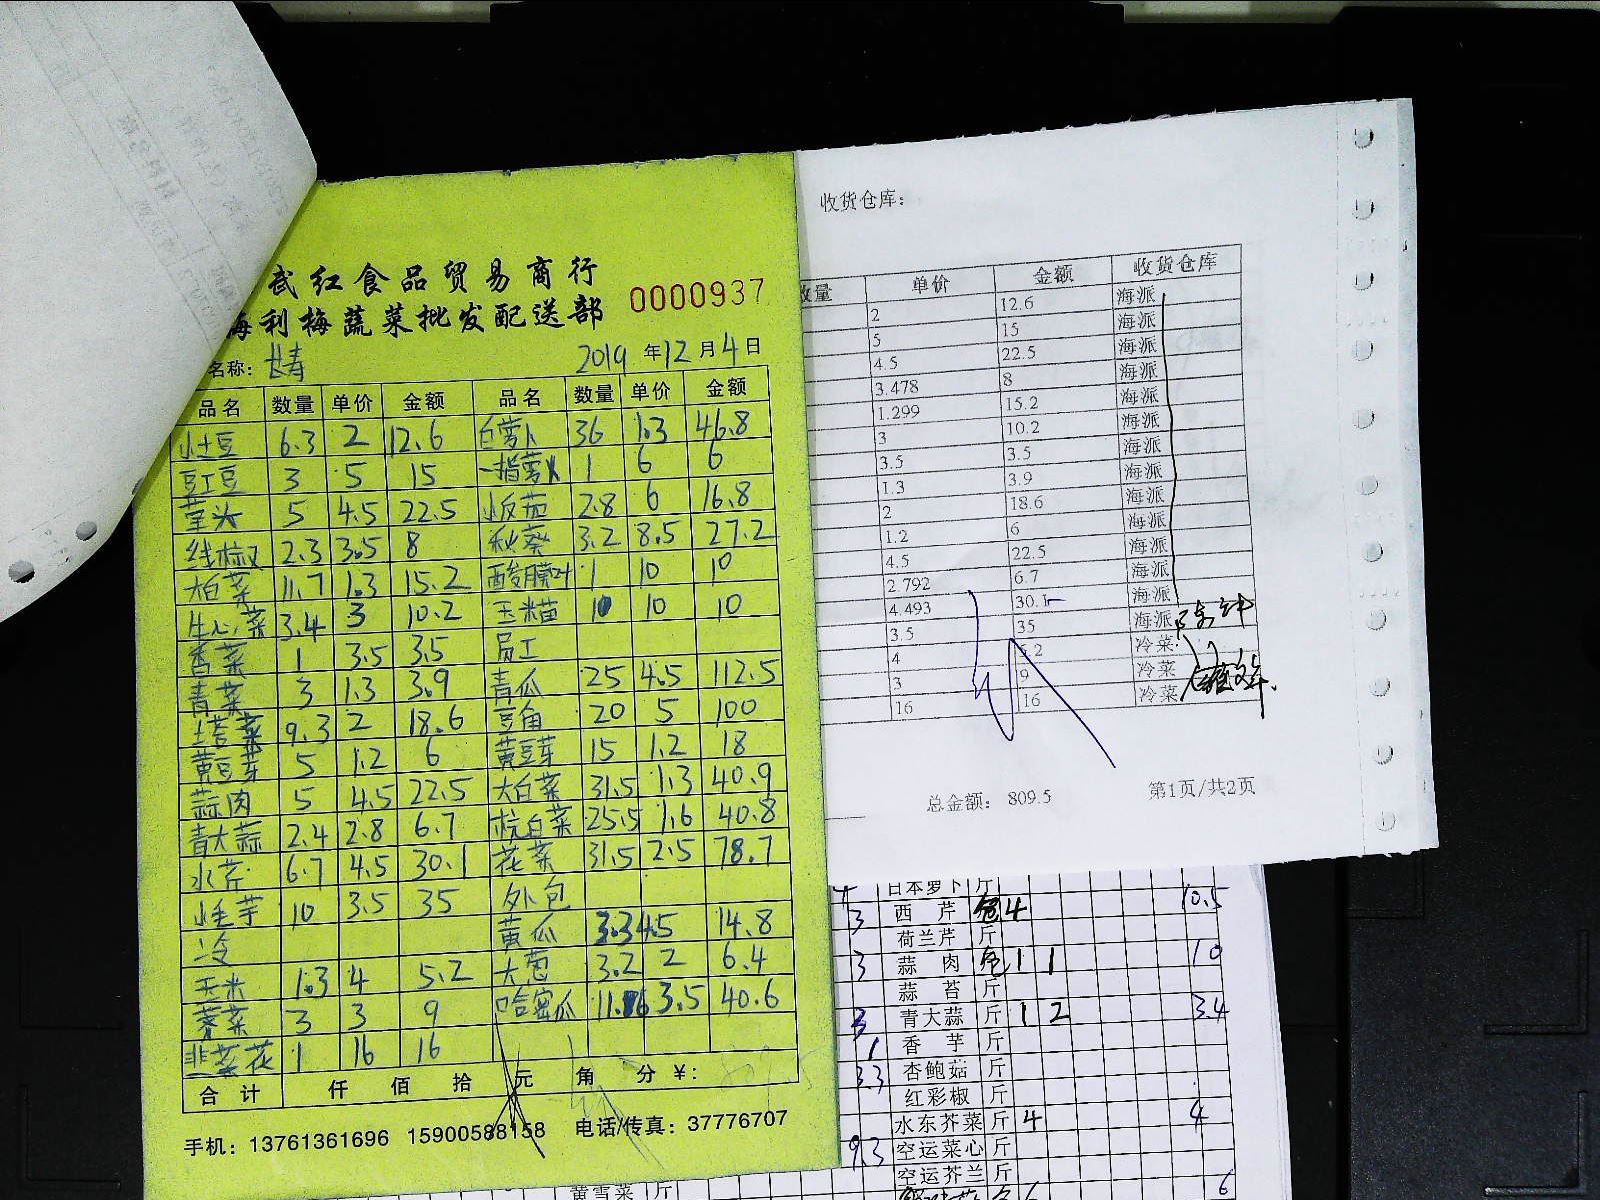 武红食品贸易商行
海利梅蔬菜批发配送部 0000937
名称: 长寿 2019 年 12 月 4 日
品名 数量 单价 金额 品名 数量 单价 金额
小土豆 6.3 2 12.6 白萝卜 36 1.3 46.8
豇豆 3 5 15 一指萝卜 1 6 6
草头 5 4.5 22.5 2.8 6 16.8
线椒 2.3 3.5 8 秋葵 3.2 8.5 27.2
大白菜 11.7 1.3 15.2 酸膜叶 1 10 10
生心菜 3.4 3 10.2 玉米苗 10 10
香菜 1 3.5 3.5 员工
青菜 3 1.3 3.9 青瓜 25 4.5 112.5
9.3 2 18.6 豆角 20 5 100
黄豆芽 5 1.2 6 黄豆芽 15 1.2 18
蒜肉 5 4.5 22.5 大白菜 31.5 1.3 40.9
青大蒜 2.4 2.8 6.7 杭白菜 25.5 1.6 40.8
水芹 6.7 4.5 30.1 花菜 31.5 2.5 78.7
小毛芋 10 3.5 35 外包
冷 黄瓜 3.3 4.5 14.8
玉米 1.3 4 5.2 大葱 3.2 2 6.4
3 3 9 哈密瓜 11.6 3.5 40.6
韭菜花 1 16 16
合计 仟 佰 拾 元 角 分 ¥:
手机: 13761361696 15900588158 电话/传真: 37776707
收货仓库:
数量 单价 金额 收货仓库
2 12.6 海派
5 15 海派
4.5 22.5 海派
3.478 8 海派
1.299 15.2 海派
3 10.2 海派
3.5 3.5 海派
1.3 3.9 海派
2 18.6 海派
1.2 6 海派
4.5 22.5 海派
2.792 6.7 海派
4.493 30.1 海派
3.5 35 海派
4 5.2 冷菜
3 9 冷菜
16 16 冷菜
总金额: 809.5 第1页/共2页
日本萝卜 斤
3 西芹 4 10.5
荷兰芹 斤
3 蒜肉 1 1 10
蒜苔 斤
3 青大蒜 斤 1 2 3.4
1 香芋 斤
3.3 杏鲍菇 斤
红彩椒 斤
水东芥菜 斤 4 4
9.3 空运菜心 斤
空运芥兰 斤
黄雪菜 斤 6 6